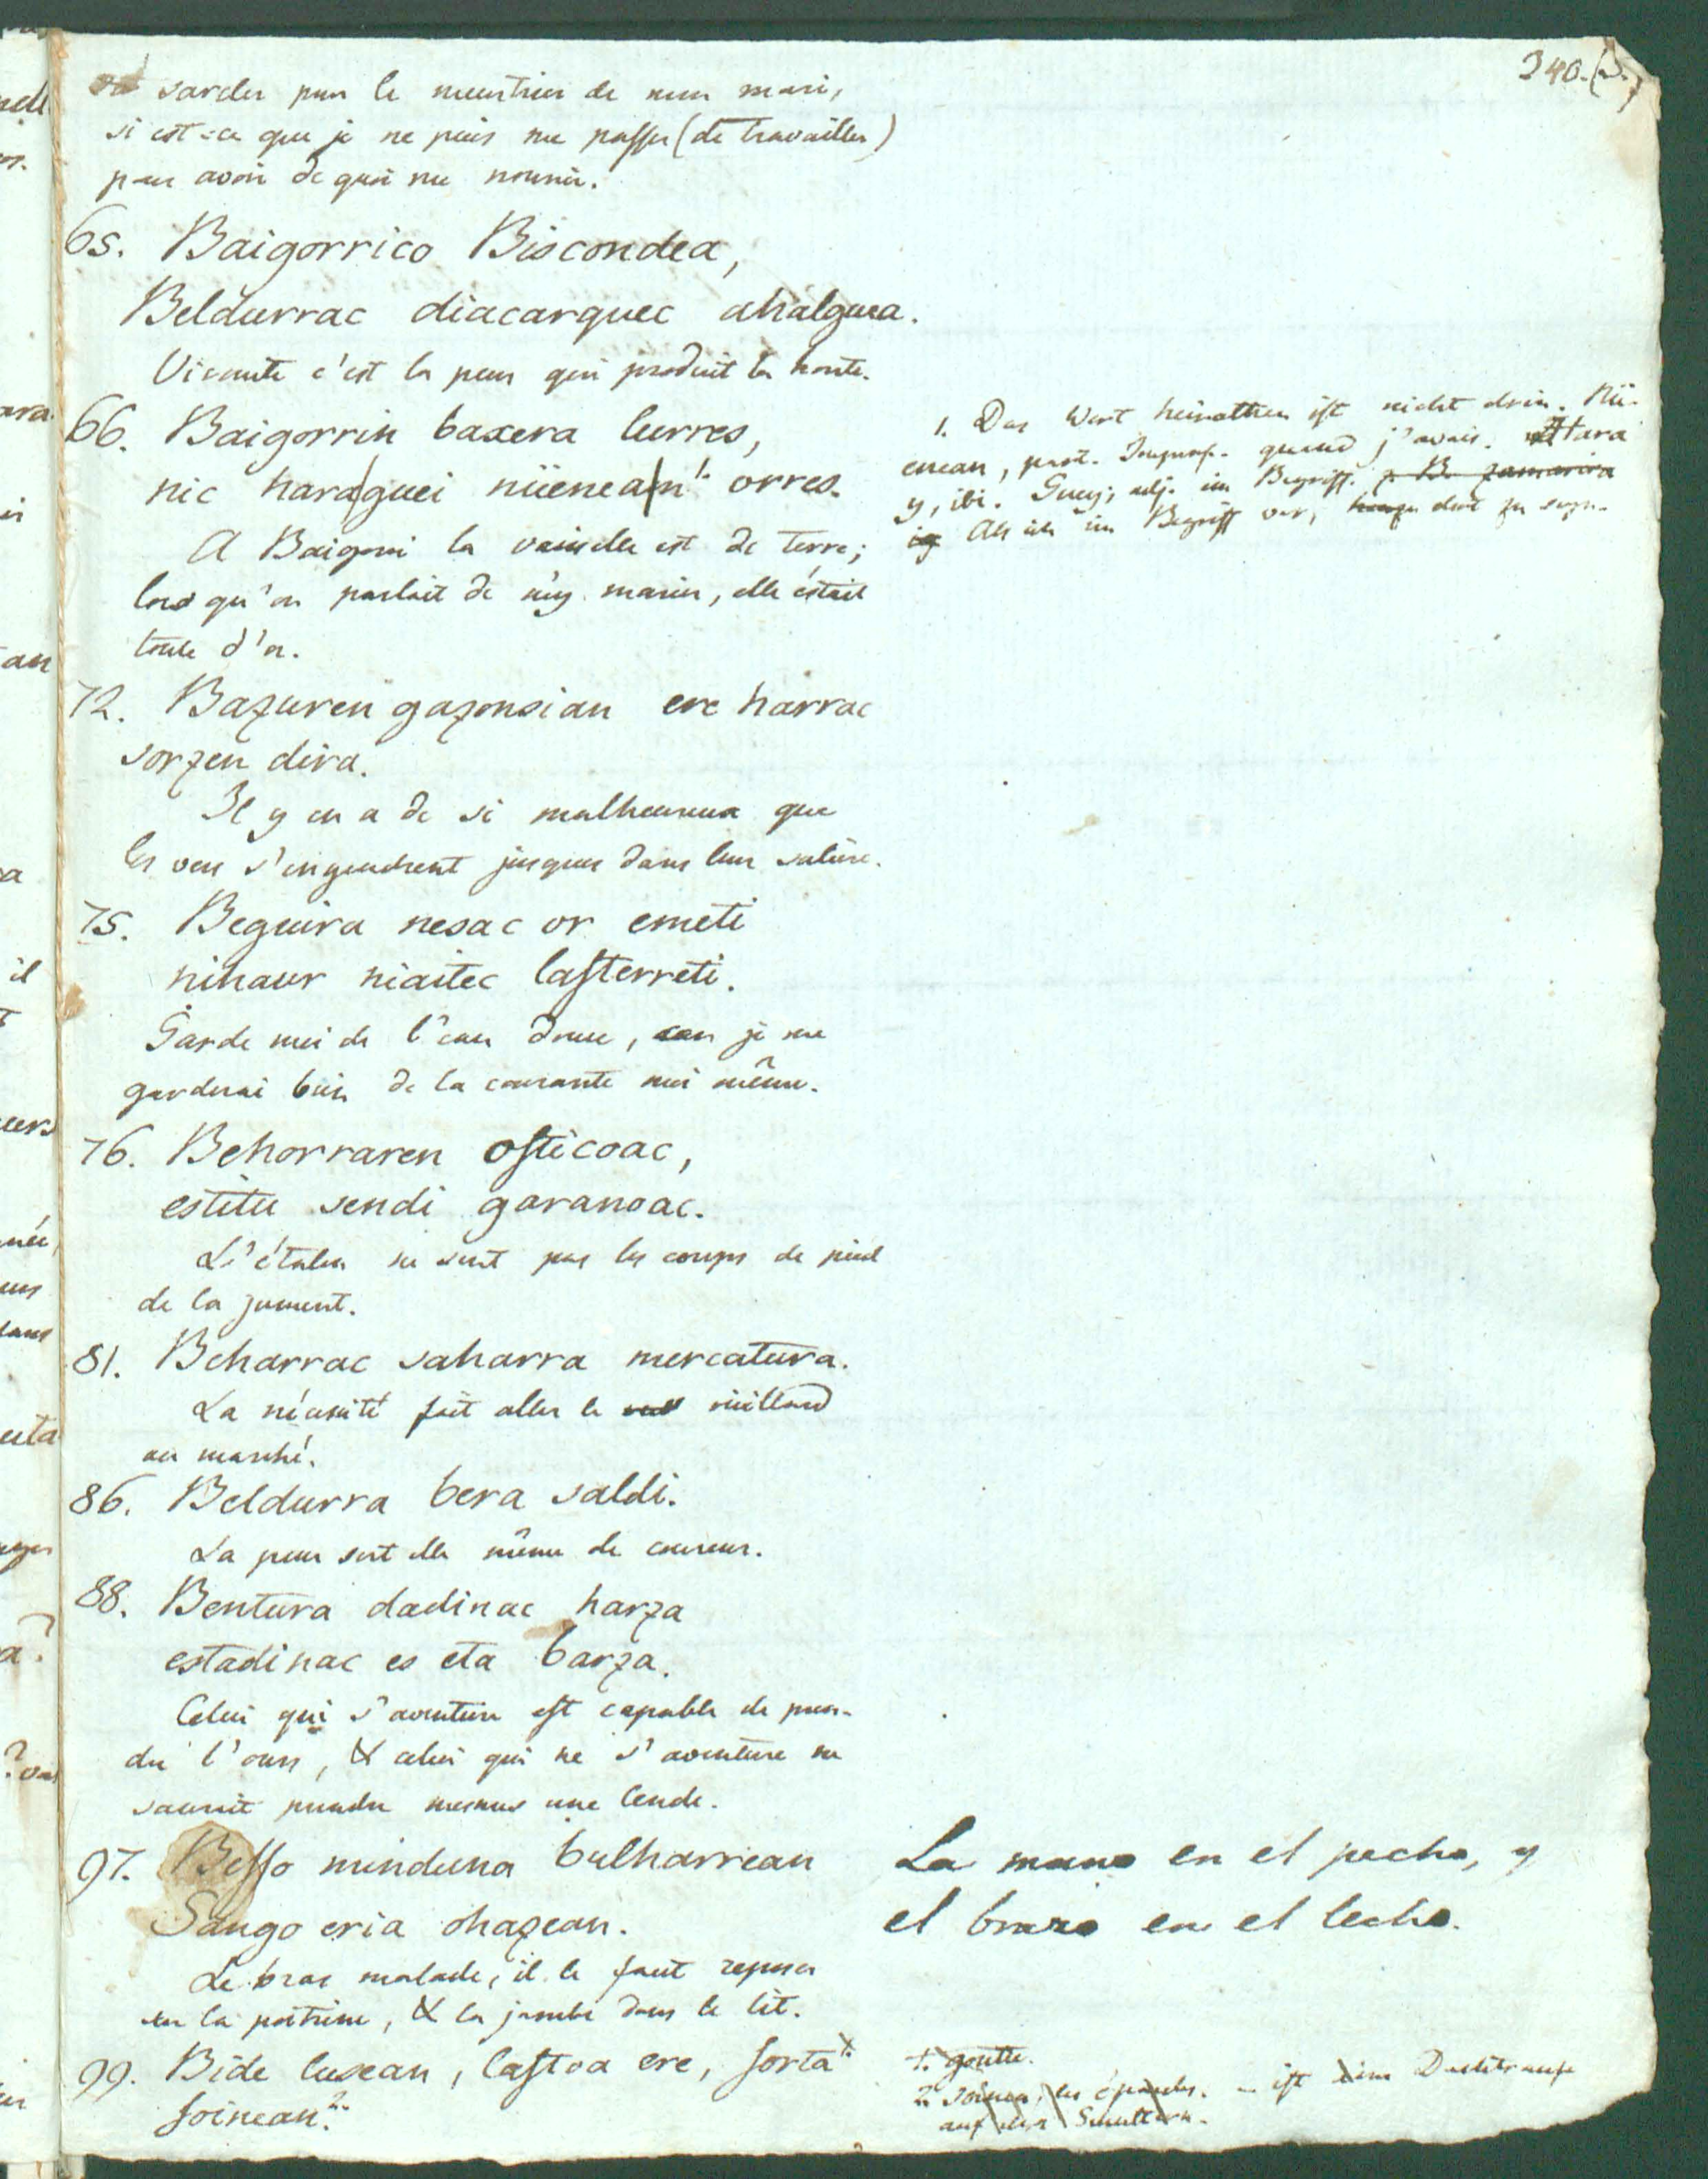 340.
sarcler pour le meurtrier de mon mari,
si est-ce que je ne puis me passer (de travailler)
pour avoir de quoi me nourrir.
65. Baigorrico Biscondea,
Beldurrac diacarquec ahalguea.
Vicomte c'est la peur qui produit la honte.
66. Baigorrin baxera lurres,
nic haraguei nüenean 1. orres.
A Baigorri la vaisselle est de terre;
lors qu'on parlait de m'y marier, elle était
toute d'or.
72. Bazuren gazonsian ere harrac
sorzen dira.
Il y en a de si malheureux que
les vers s'engendrent jusques dans leur salière.
75. Beguira nesac or emeti
nihaur niaitec lasterreti.
Garde moi de l'eau douce, car je me
garderai bien de la courante moi même.
76. Behorraren osticoac,
estitu sendi garanoac.
L'étalon ne sent pas les coups de pied
de la jument.
81. Beharrac saharra mercatura.
La nécessité fait aller le vieillard
au marché.
86. Beldurra bera saldi.
La peur sert elle même de coureur.
88. Bentura dadinac harza
estadinac es eta barza.
Celui qui s'aventure est capable de pren-
dre l'ours, & celui qui ne s'aventure ne
saurait prendre mesmes une lende.
97. Besso minduna bulharrean
Sango eria ohazean.
Le bras malade, il le faut reposer
sur la poitrine, & la jambe dans le lit.
99. Bide lusean, lastoa ere, sorta 1.
soinean. 2.
1. Das Wort heirathen ist nicht drin. Nü-
enean, quand j'avais. Hara
y, ibi. Guey, adj. im Begriff. z. B. zamarira
Als ich im Begriff war, dort zu seyn.
La mano en el pecho, y
el brazo en el lecho.
1. goutte.
2. soinea, les épaules. ist eine Dachtraufe
auf den Schultern.